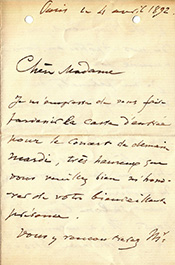 Paris le 4 avril 1892.
Chère Madame
Je m'empresse de vous faire
parvenir la carte d'entrée
pour le concert de demain
mardi, très heureux que
vous vouliez bien m'hono-
rer de votre bienveillante
présence.
Vous y rencontrerez Mr.